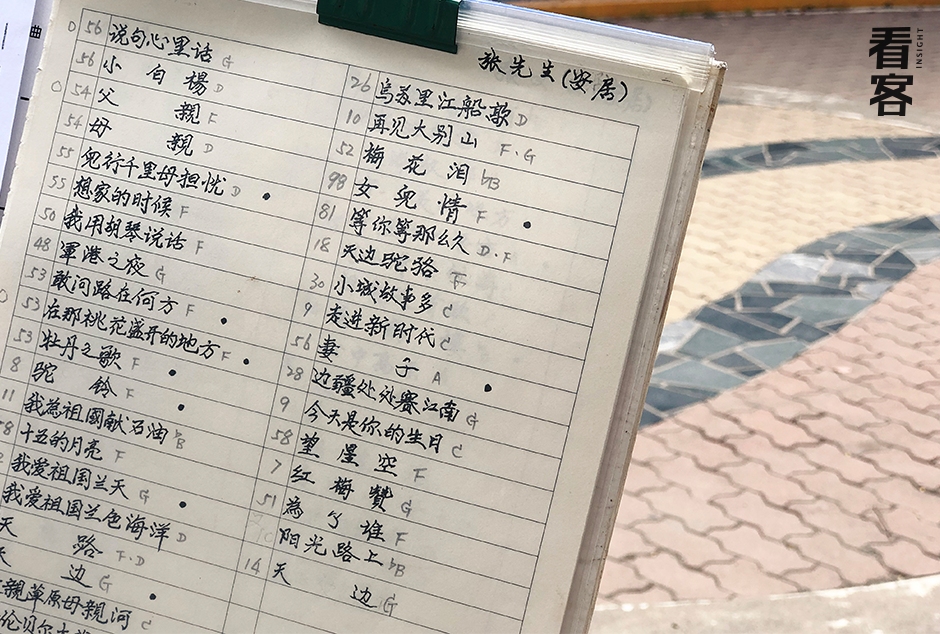 看客
INSIGHT
曲
张先生(安居)
D 56 说句心里话 G
56 小白楊 D
C 54 父親 F
54 母親 D
55 兒行千里母担忧 D •
55 想家的时候 F
50 我用胡琴说话 F
48 軍港之夜 G
53 敢问路在何方 F •
53 在那桃花盛开的地方 F •
53 牡丹之歌 F •
8 驼铃 F •
11 我為祖國献石油 ♭B
58 十五的月亮 F
我爱祖国兰天 G •
我爱祖国兰色海洋 D
天路 F·D
天边 G
親草原母親河 C •
伦贝尔大
26 乌苏里江船歌 D
10 再见大别山 F·G
52 梅花泪 ♭B
98 女兒情 F •
81 等你等那么久 D·F
18 天边驼骆 F
30 小城故事多 C
9 走进新时代 C
56 妻子 A •
28 边疆处处赛江南 G
9 今天是你的生日 C
58 望星空 F
7 红梅赞 G
51 為了谁 F
阳光路上 ♭B
14 天边 G